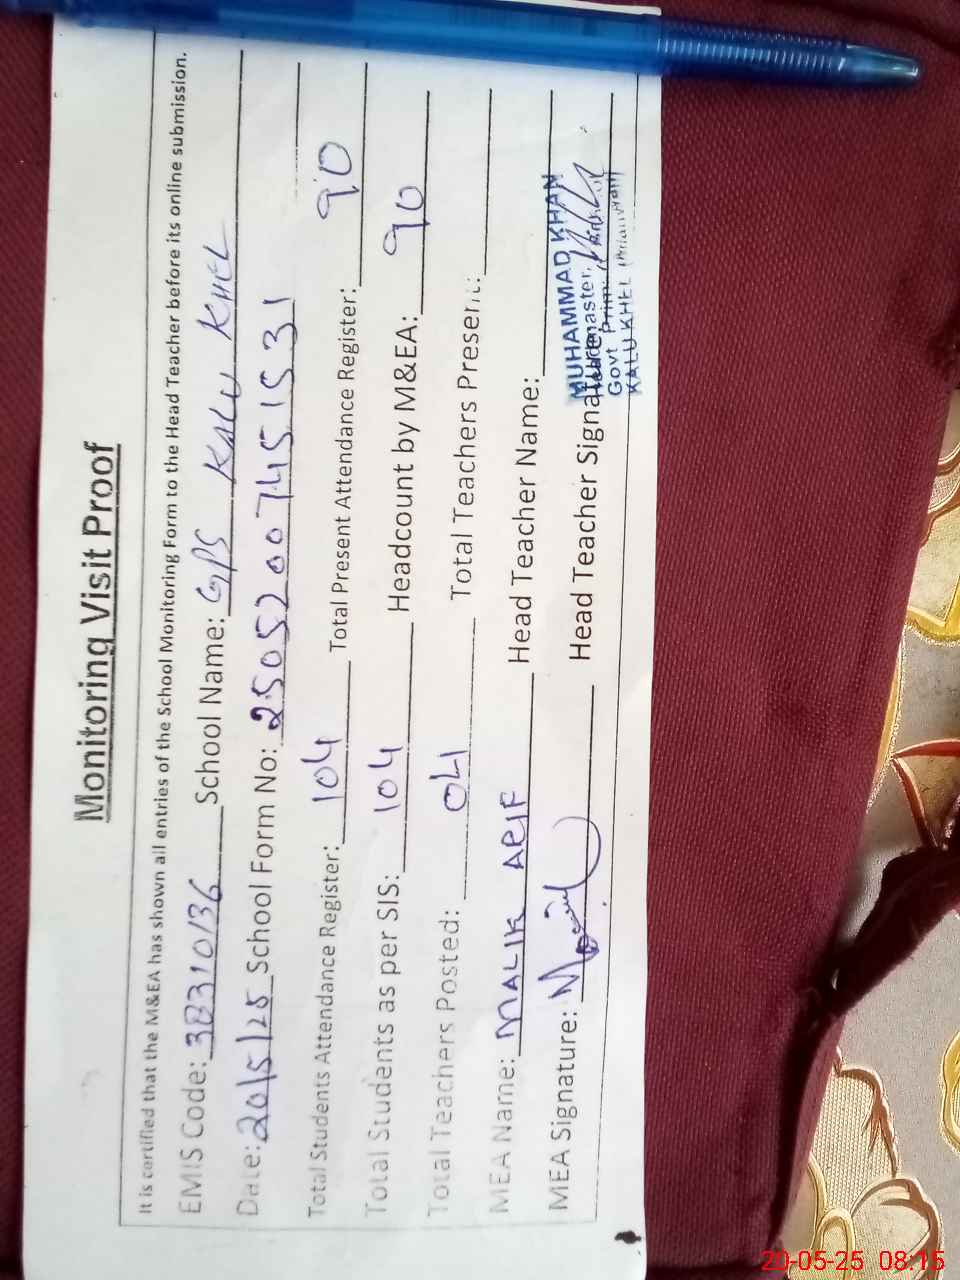 Monitoring Visit Proof
It is certified that the M&EA has shown all entries of the School Monitoring Form to the Head Teacher before its online submission.
EMIS Code: 38310136 School Name: GPS KALU KHEL
Date: 20/5/25 School Form No: 25052007451531
Total Students Attendance Register: 104 Total Present Attendance Register: 90
Total Students as per SIS: 104 Headcount by M&EA: 90
Total Teachers Posted: 04 Total Teachers Present:
MEA Name: MALIK ARIF Head Teacher Name:
MEA Signature: Head Teacher Signature:
MUHAMMAD KHAN
Headmaster,
Govt Prim:
KALU KHEL (Mianwali)
20-05-25 08:15